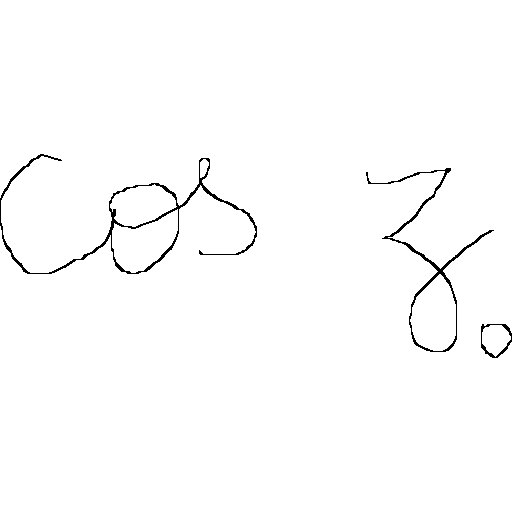 cos z.